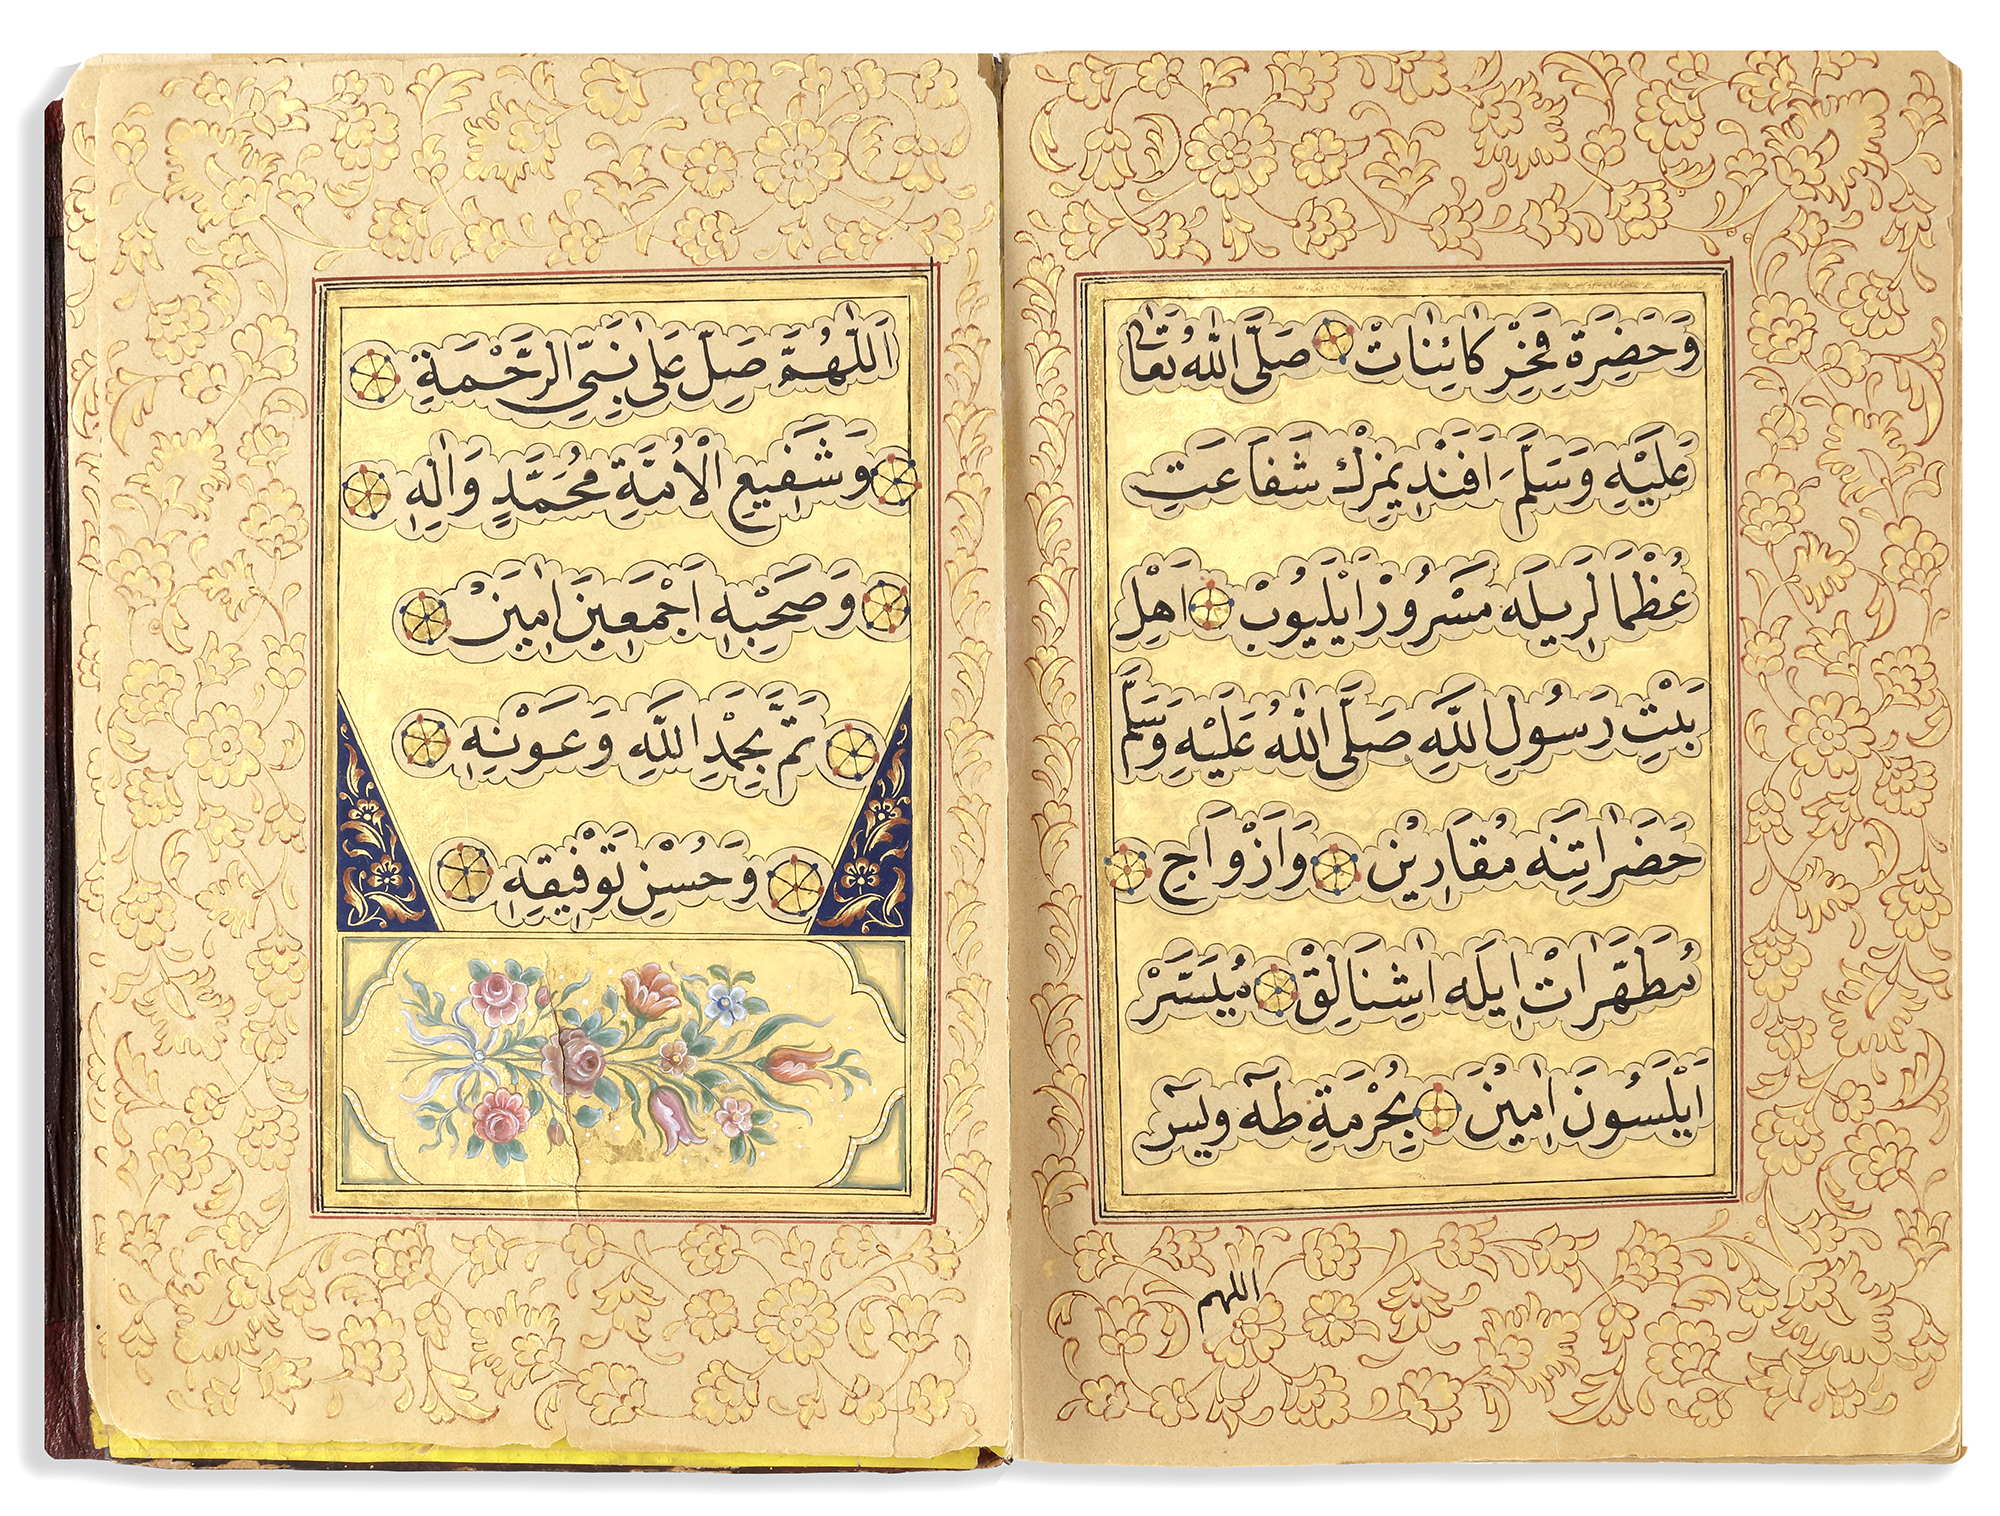 وَحَضَرَةِ فَخْرِ كَائِنَاتْ صَلَّى اللّٰهُ تَعَالٰى
عَلَيْهِ وَسَلَّمَ اَفَنْدِيمِزِكْ شَفَاعَتِ
عُظْمَالَرِيلَه مَسْرُورْ اَيْلَيُوبْ اَهْلِ
بَيْتِ رَسُولِ اللّٰهِ صَلَّى اللّٰهُ عَلَيْهِ وَسَلَّمْ
حَضَرَاتِنَه مُقَارِينْ وَاَزْوَاجِ
مُطَهَّرَاتْ اِيلَه اٰشِنَالِقْ مُيَسَّرْ
اَيْلَسُونْ اٰمِينْ بِحُرْمَةِ طٰهٓ وَيٰسٓ
اللهم
اَللّٰهُمَّ صَلِّ عَلٰى نَبِيِّ الرَّحْمَةِ
وَشَفِيعِ الْاُمَّةِ مُحَمَّدٍ وَاٰلِهٖ
وَصَحْبِهٖ اَجْمَعِينَ اٰمِينَ
تَمَّ بِحَمْدِ اللّٰهِ وَعَوْنِهٖ
وَحُسْنِ تَوْفِيقِهٖ